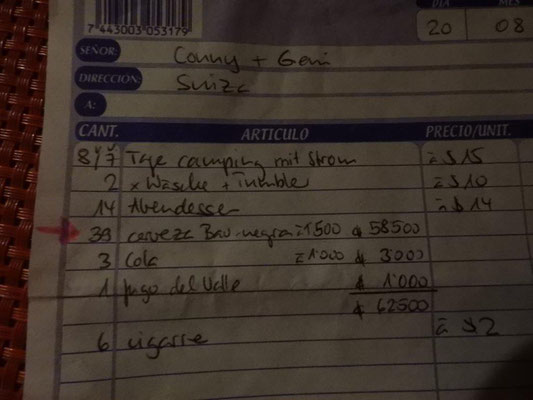 7 443003 053179
DIA MES
20 08
SEÑOR: Conny + Geri
DIRECCIÓN: Suiza
A:
CANT. ARTICULO PRECIO/UNIT.
Tage camping mit Strom à $ 15
2 x Wäsche + Tumbler à $ 10
14 Abendessen à $ 14
39 cerveza Bav. negra à 1'500 ¢ 58500
3 Cola à 1'000 ¢ 3000
1 jugo del Valle ¢ 1'000
¢ 62500
6 cigarre à $ 2